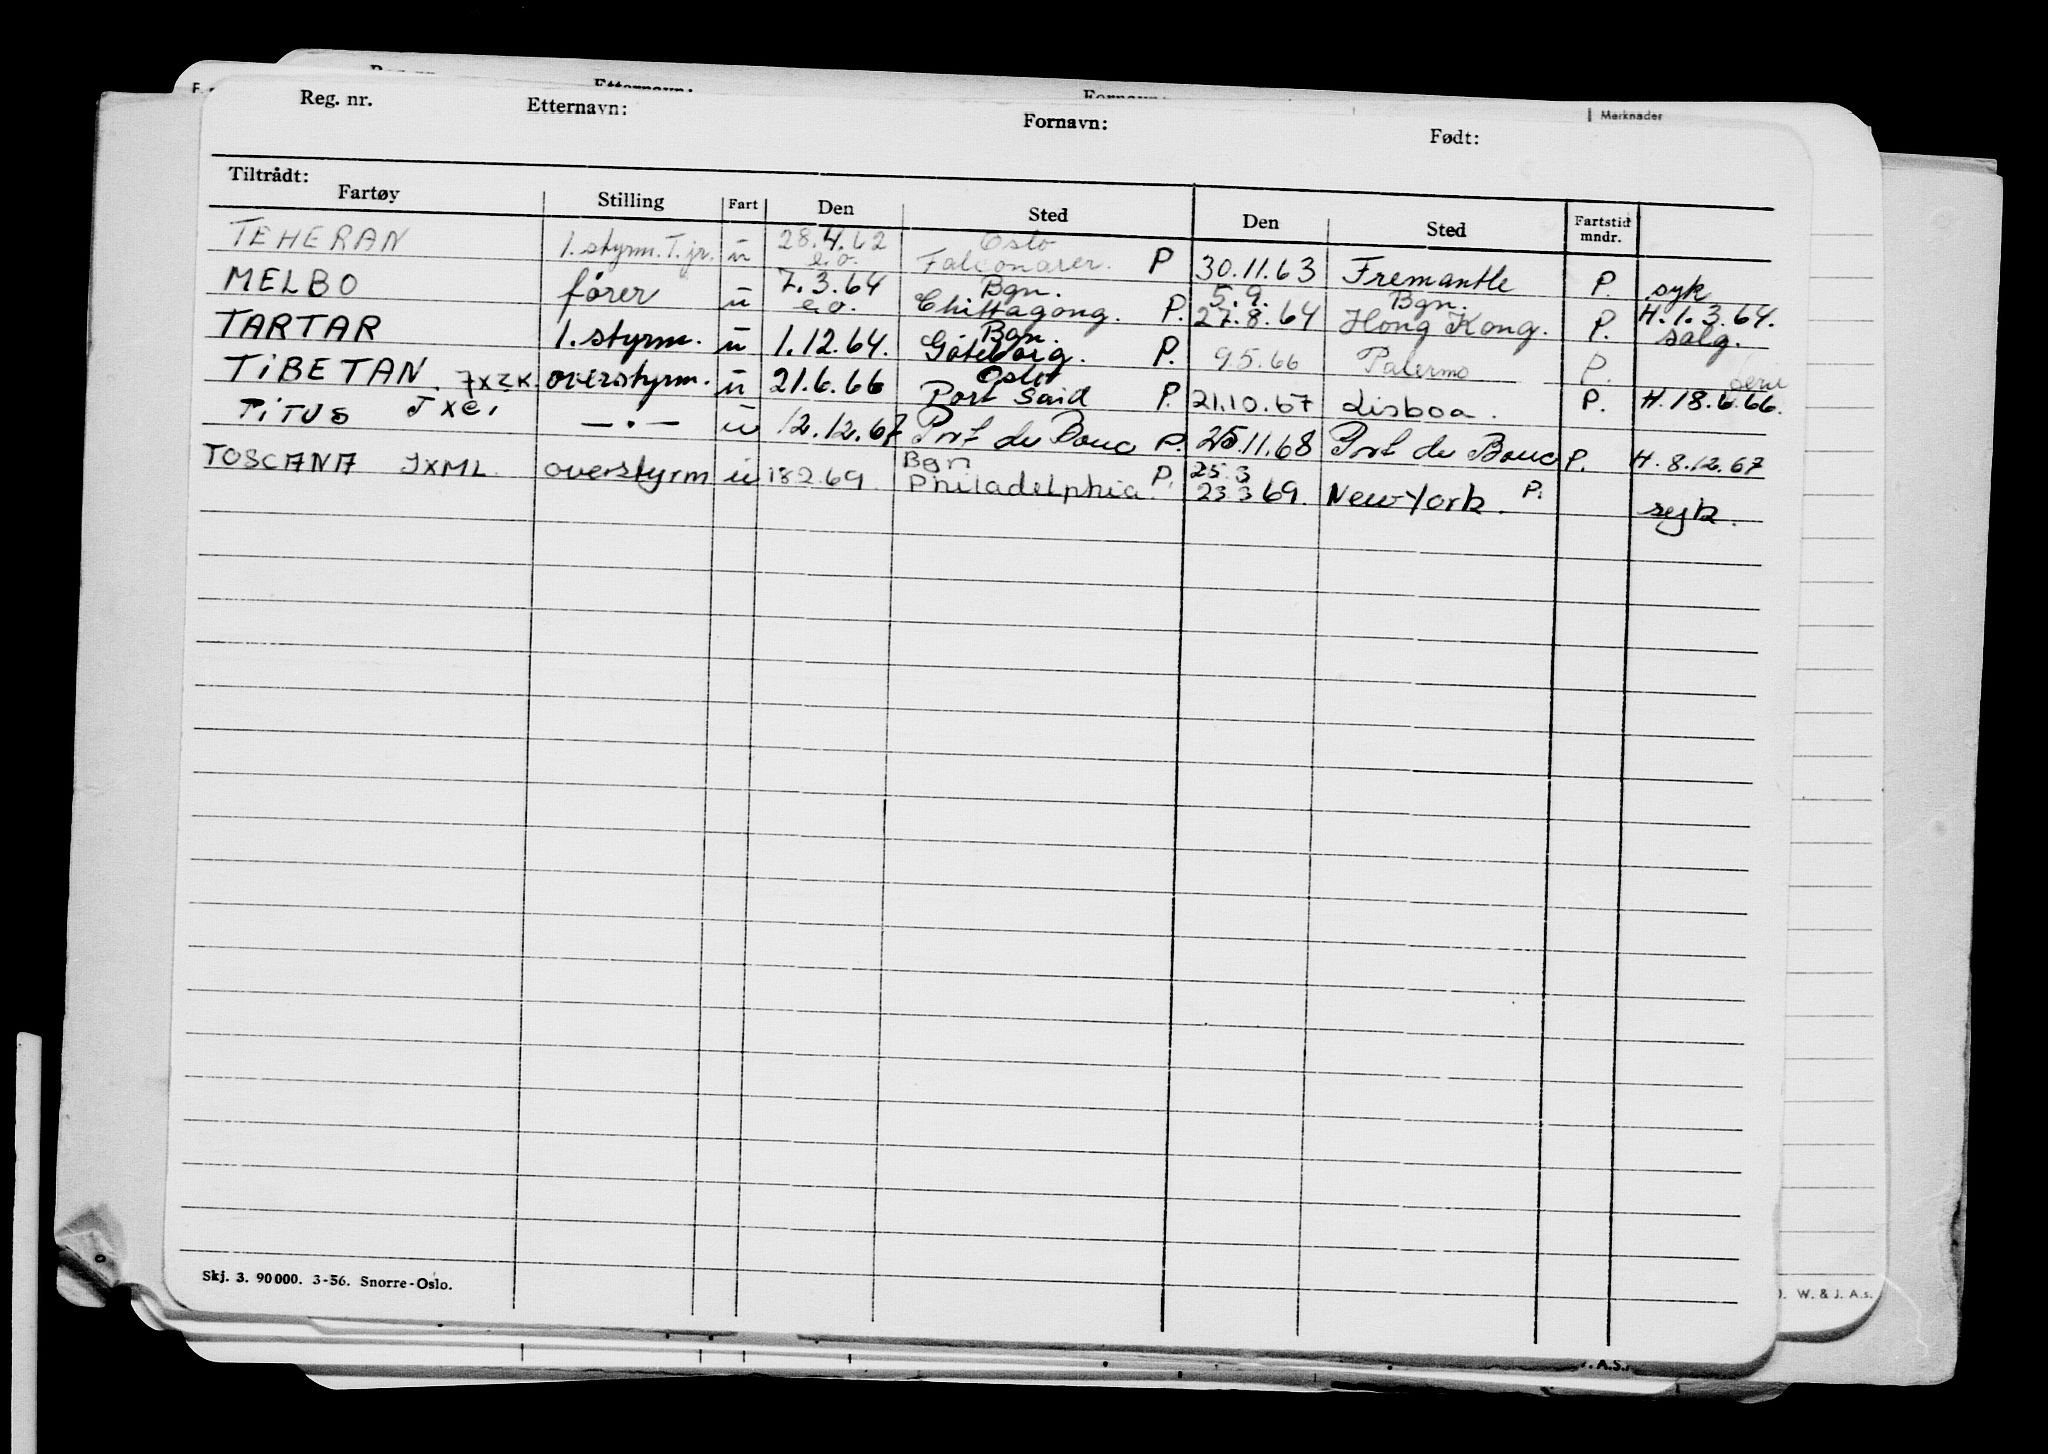 Reg. nr. Etternavn: Fornavn: Født: Merknader
Tiltrådt:
Fartøy Stilling Fart Den Sted Den Sted Fartstid mndr.
TEHERAN 1. styrm. T. jr. u 28.4.62 e.o. Oslo P 30.11.63 Fremantle P. syk
MELBO fører u 7.3.64 e.o. Bgn. Chittagong. P. 5.9. 27.8.64 Bgn. Hong Kong. P. H. 1.3.64. salg.
TARTAR 1. styrm. u 1.12.64. Bgn. Göteborg. P. 9.5.66 Palermo P.
TiBETAN. JXZK. overstyrm. u 21.6.66 Oslo Port Said P. 21.10.67 Lisboa. P. H. 18.6.66.
TiTUS JXEI —.— u 12.12.67 Port de Bouc P. 25.11.68 Port de Bouc P. H. 8.12.67
TOSCANA JXML. overstyrm u 18.2.69 Bgn Philadelphia P. 25.3 23.3 69. New York. P. syk.
Skj. 3. 90000. 3-56. Snorre-Oslo.
W. & J. A.s.